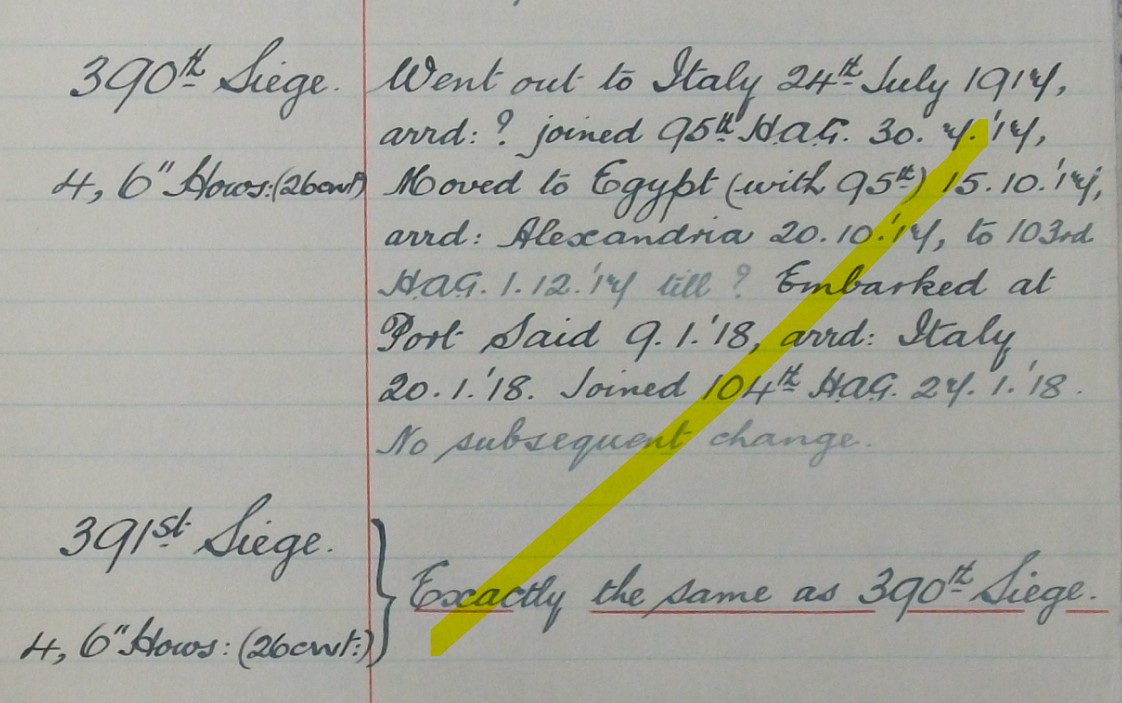 390th Siege. Went out to Italy 24th July 1917,
arrd: ? joined 95th H.A.G. 30. 7.'17,
4, 6" Hows:(26cwt) Moved to Egypt (with 95th) 15.10.'17,
arrd: Alexandria 20.10.'17, to 103rd
H.A.G. 1.12.'17 till ? Embarked at
Port Said 9.1.'18, arrd: Italy
20.1.'18. Joined 104th H.A.G. 27.1.'18.
No subsequent change.
391st Siege.
Exactly the same as 390th Siege.
4, 6" Hows: (26cwt:)